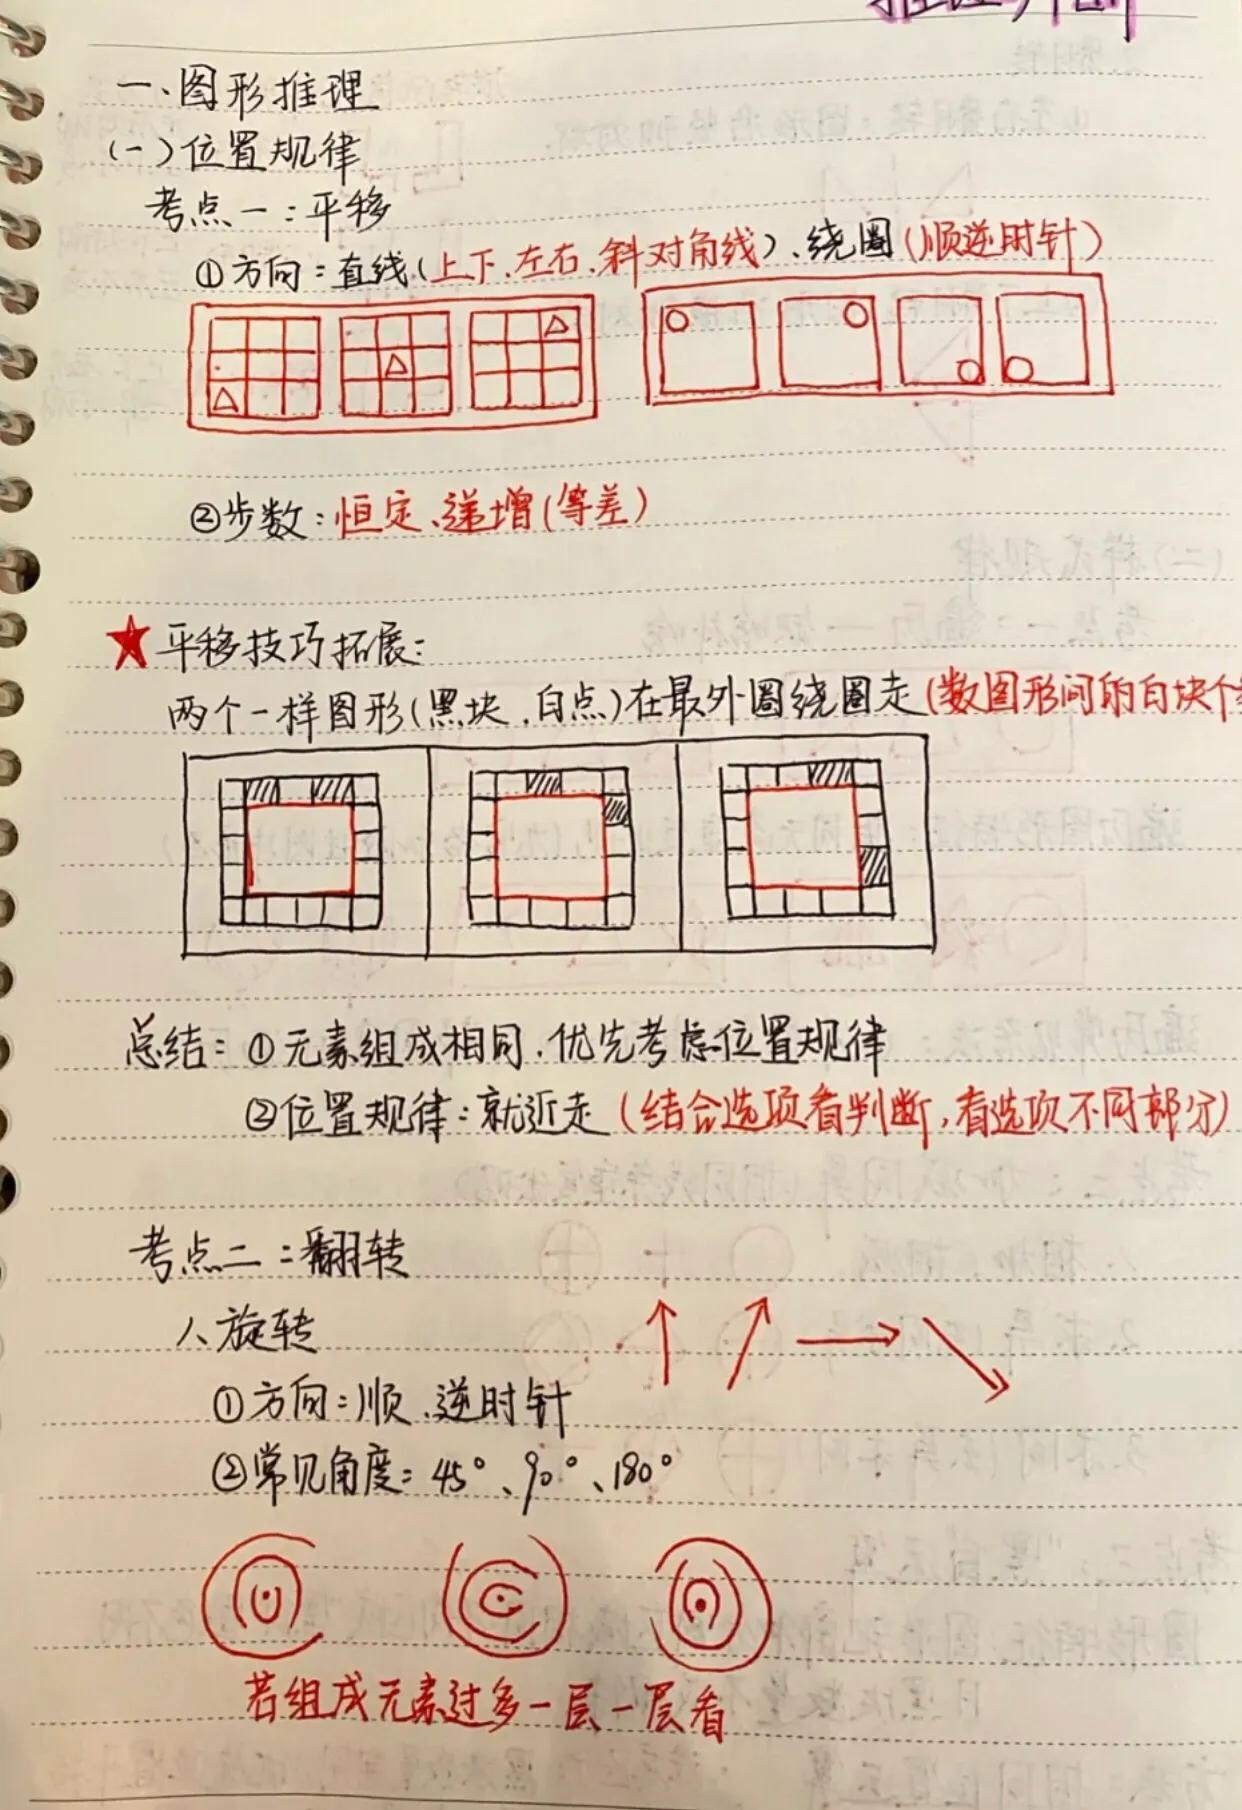 推理判断
一、图形推理
(一)位置规律
考点一:平移
①方向:直线(上下、左右、斜对角线)、绕圈(顺逆时针)
②步数:恒定、递增(等差)
★平移技巧拓展:
两个一样图形(黑块、白点)在最外圈绕圈走(数图形间的白块个
总结:①元素组成相同,优先考虑位置规律
②位置规律:就近走(结合选项看判断,看选项不同部分)
考点二:翻转
1、旋转
①方向:顺、逆时针
②常见角度:45°、90°、180°
若组成元素过多一层一层看